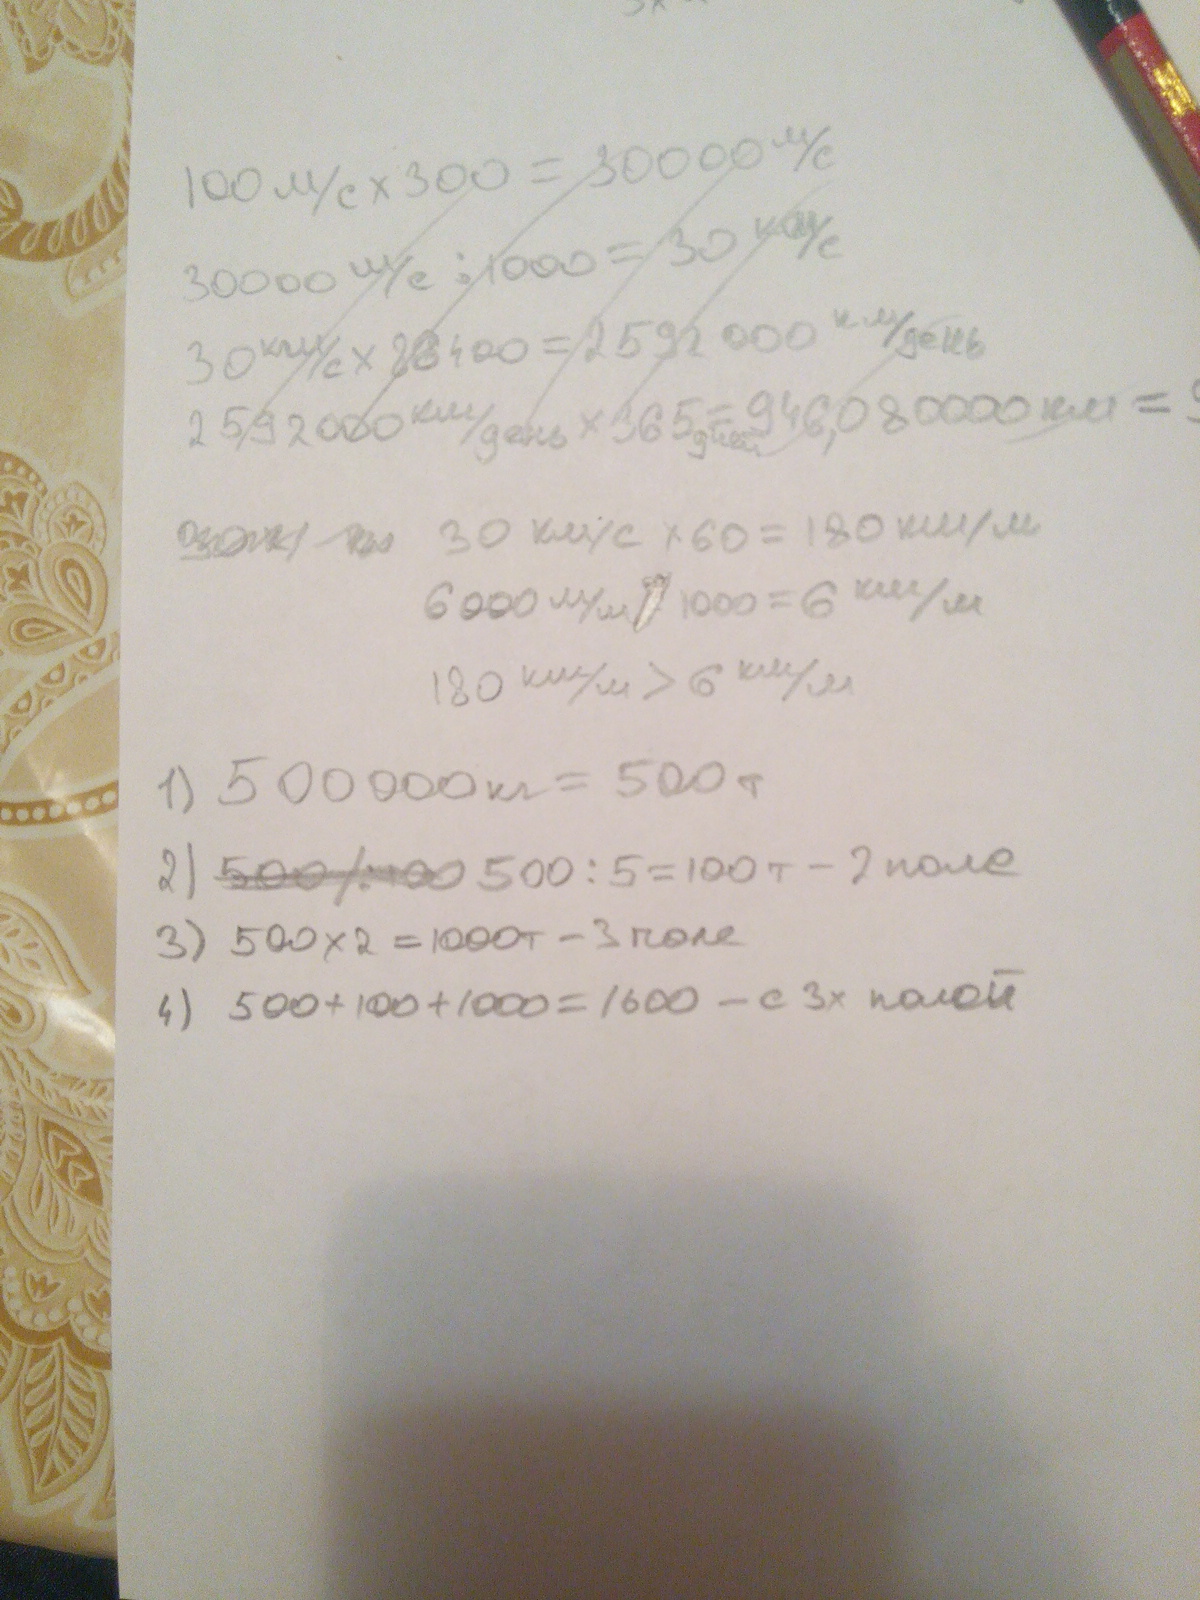 100 м/с × 300 = 30000 м/с
30000 м/с : 1000 = 30 км/с
30 км/с × 86400 = 2592000 км/день
2592000 км/день × 365 дней = 946,080000 км = 9
30 км/с × 60 = 180 км/м
6000 м/м 1000 = 6 км/м
180 км/м > 6 км/м
1) 500000 кг = 500 т
2) 500 / : 100 500 : 5 = 100 т – 2 поле
3) 500 × 2 = 1000 т – 3 поле
4) 500 + 100 + 1000 = 1600 – с 3х полой